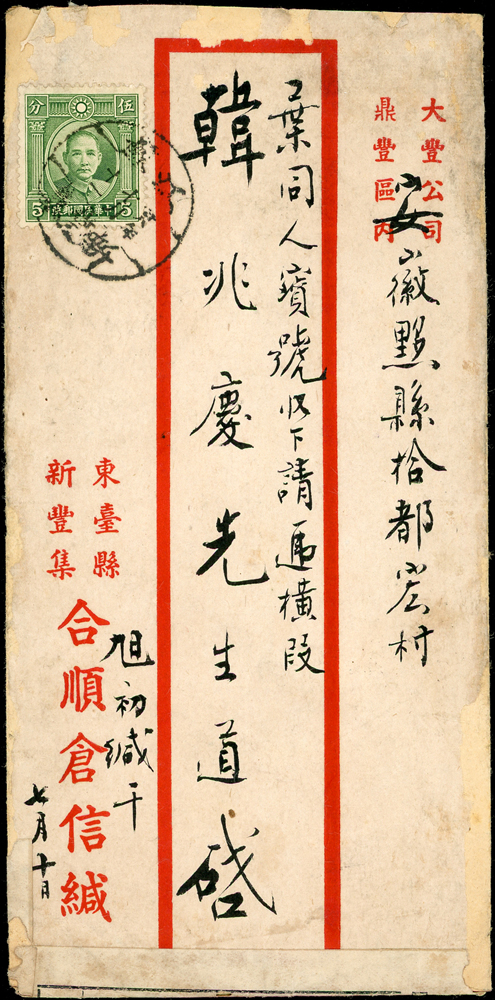 大豐公司
鼎豐區內
安徽黟縣拾都宏村
葉同人寶號收下請逓橫段
韓兆慶先生道啓
東臺縣
新豐集
合順倉信緘
旭初緘干
七月十日
伍分
中華民國郵票
5 5